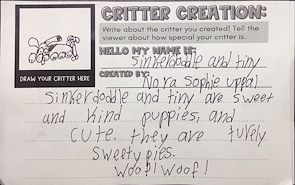 CRITTER CREATION:
Write about the critter you created! Tell the
viewer about how special your critter is.
HELLO MY NAME IS:
sinkerdoddle and tiny
CREATED BY:
Nora Sophie uppal
DRAW YOUR CRITTER HERE
sinkerdoddle and tiny are sweet
and kind puppies, and
cute. they are turely
sweety pies.
woof! woof!